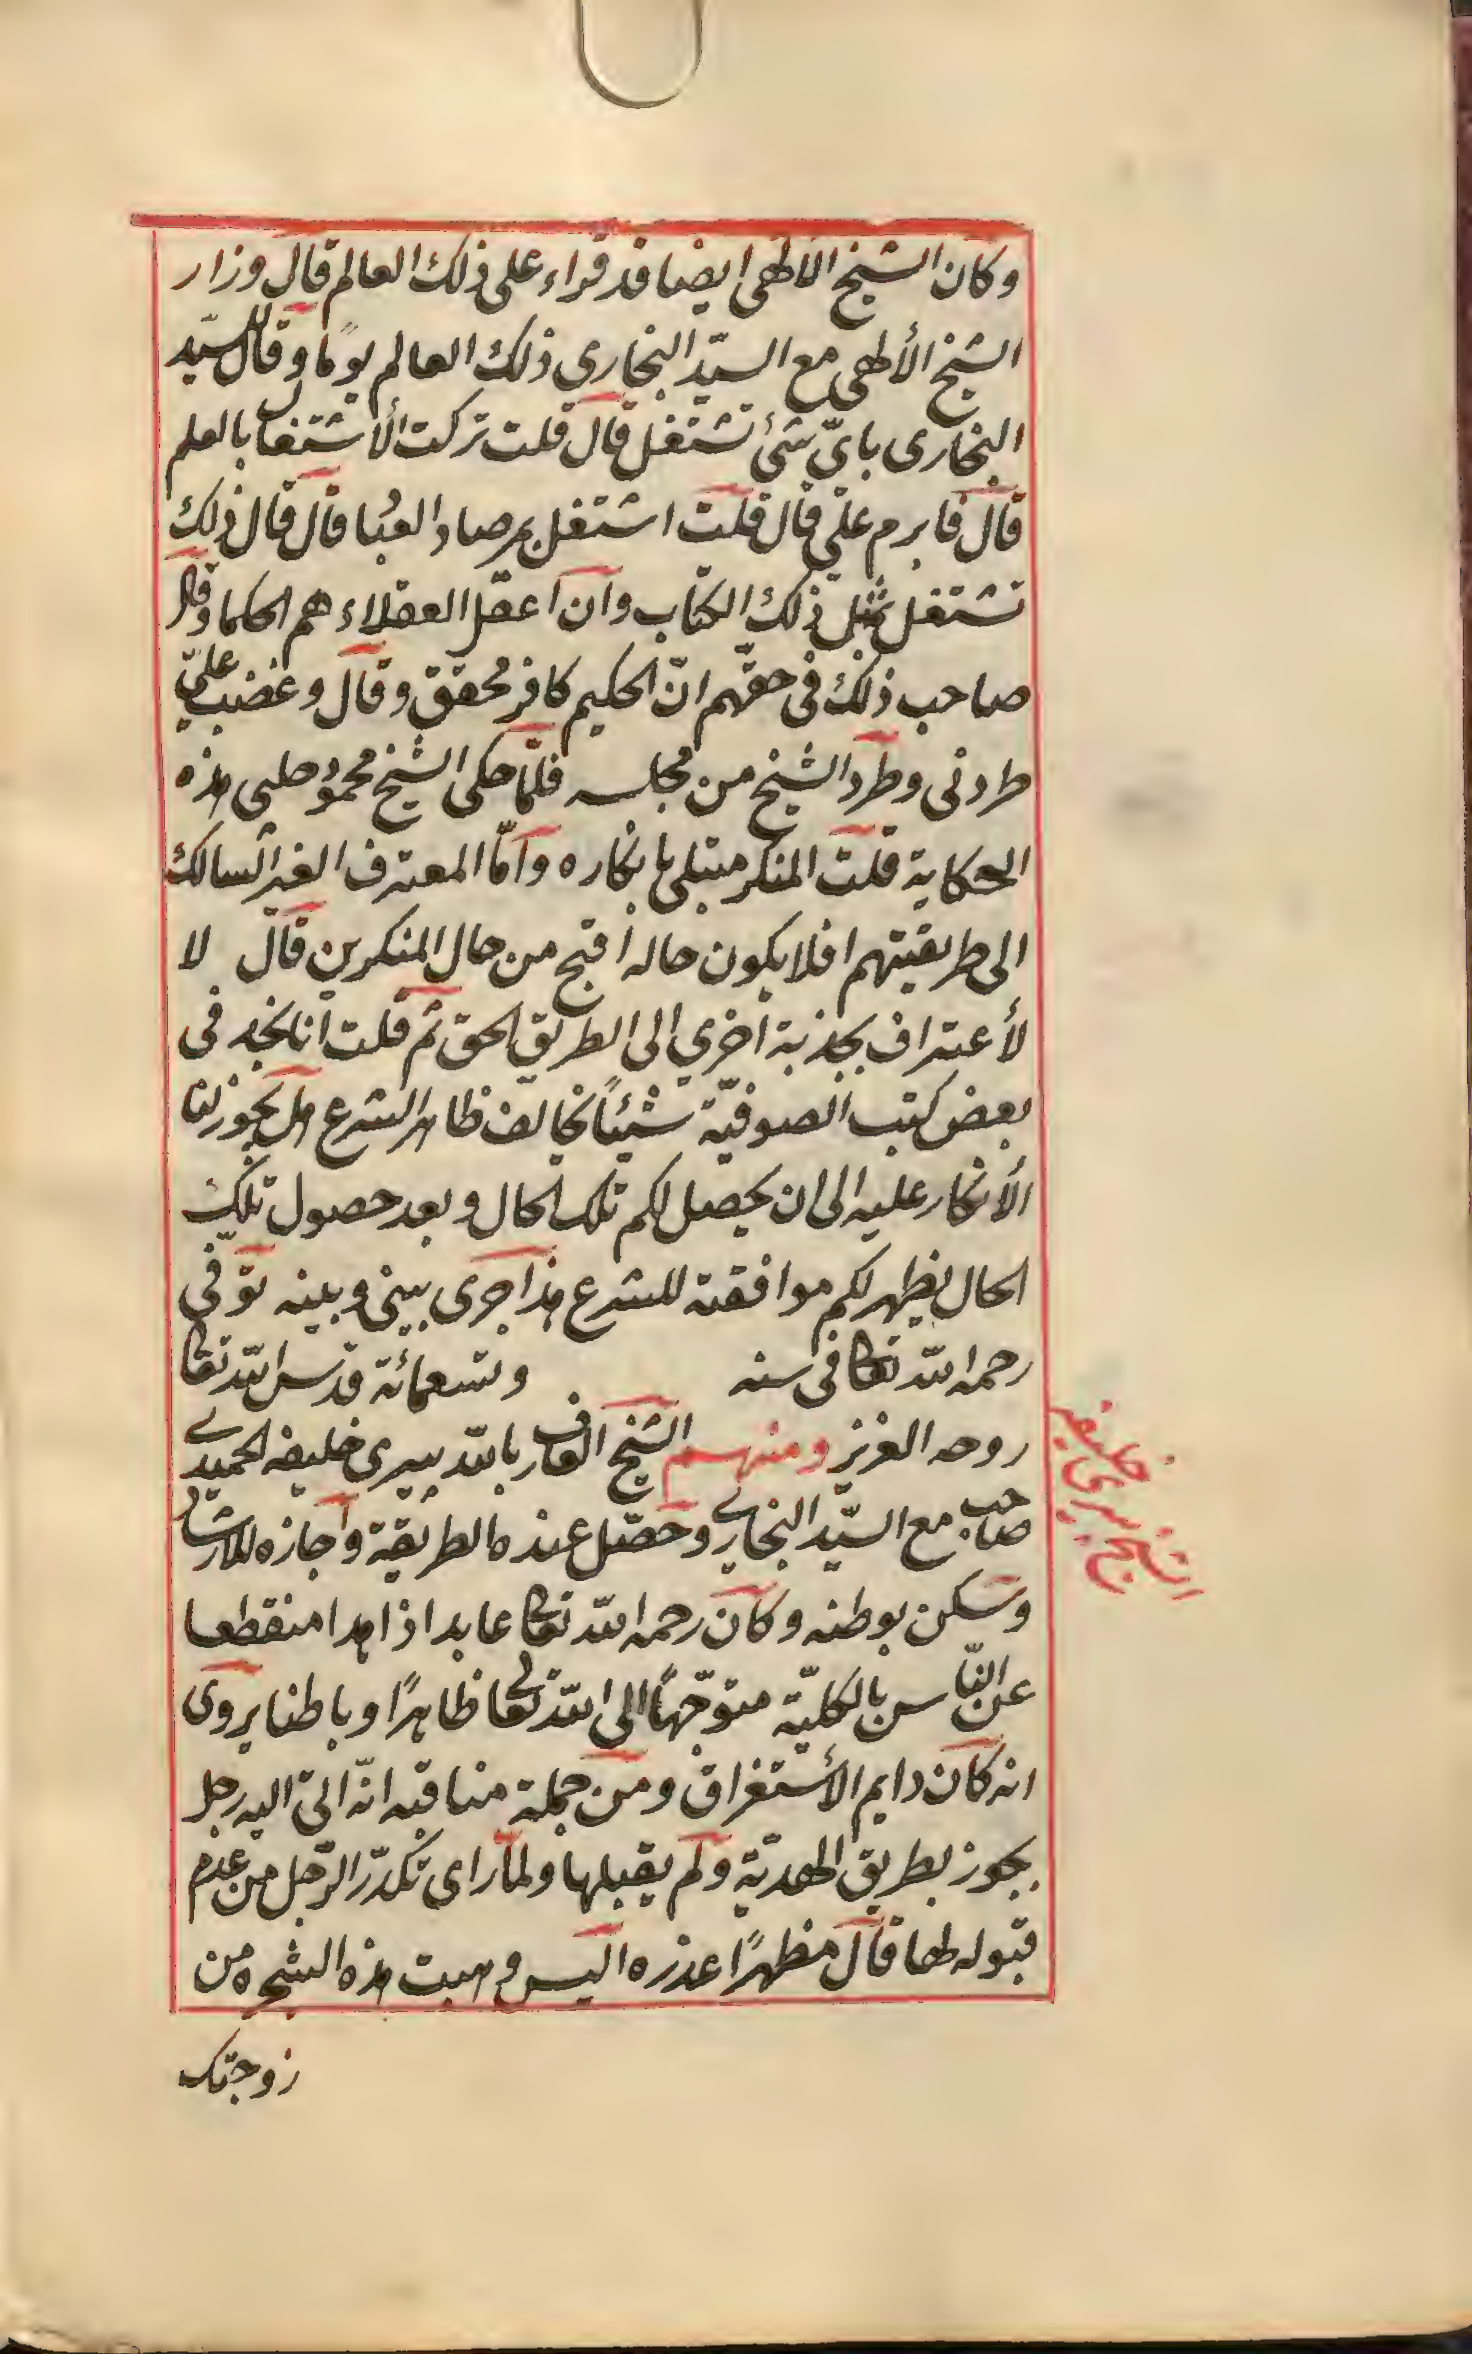 وكان الشيخ الالهى ايضا قد قراء على ذلك العالم قال وزار
الشيخ الألهى مع السيّد البخارى ذلك العالم يومًا وقال للسيّد
البخارى بايّ شئ تشتغل قال قلت تركت الأشتغال بالعلم
قال فابرم علىّ قال قلت اشتغل بمرصاد العبُا قال قال ذلك
تشتغل بمثل ذلك الكتاب وان اعقل العقلاء هم الحكما وقال
صاحب ذلك فى حقّهم انّ الحكيم كافر محقق وقال وغضب علىّ
طردنى وطرد الشيخ من مجلسه فلمّا حكى الشيخ محمود چلبى هذه
الحكاية قلت المنكر مبتلى بانكاره وامّا المعترف الغير السالك
الى طريقتهم افلا يكون حاله أقبح من حال المنكرين قال لا
لأعتراف يجذبه أخرى الى الطريق الحق ثم قلت انا نجد فى
بعض كتب الصوفيّة شيئًا يخالف ظاهر الشرع هل يجوز لنا
الأنكار عليه الى ان يحصل لكم تلك الحال وبعد حصول تلك
الحال يظهر لكم موافقته للشرع هذا جرى بينى وبينه توفى
رحمه الله تعالى فى سنه وتسعمائة قدس الله تعالى
روحه العزيز ومنهم الشيخ العارف بالله پيرى خليفه الحميدى
صاحب مع السيّد البخارى وحصّل عنده الطريقة واجازه للارشاد
وسكن بوطنه وكان رحمه الله تعالى عابدا زاهدا منقطعا
عن النّاس بالكليّة متوجّهًا الى الله تعالى ظاهرًا وباطنا يروى
انه كان دايم الأستغراق ومن جملة مناقبه انّه اتى اليه رجل
بجوز بطريق الهديّة ولم يقبلها ولمّا راى تكدّر الرّجل من عدم
قبوله لها قال مظهرًا عذره اليس وهبت هذه الشجره من
زوجتك
الشيخ پيرى خليفه